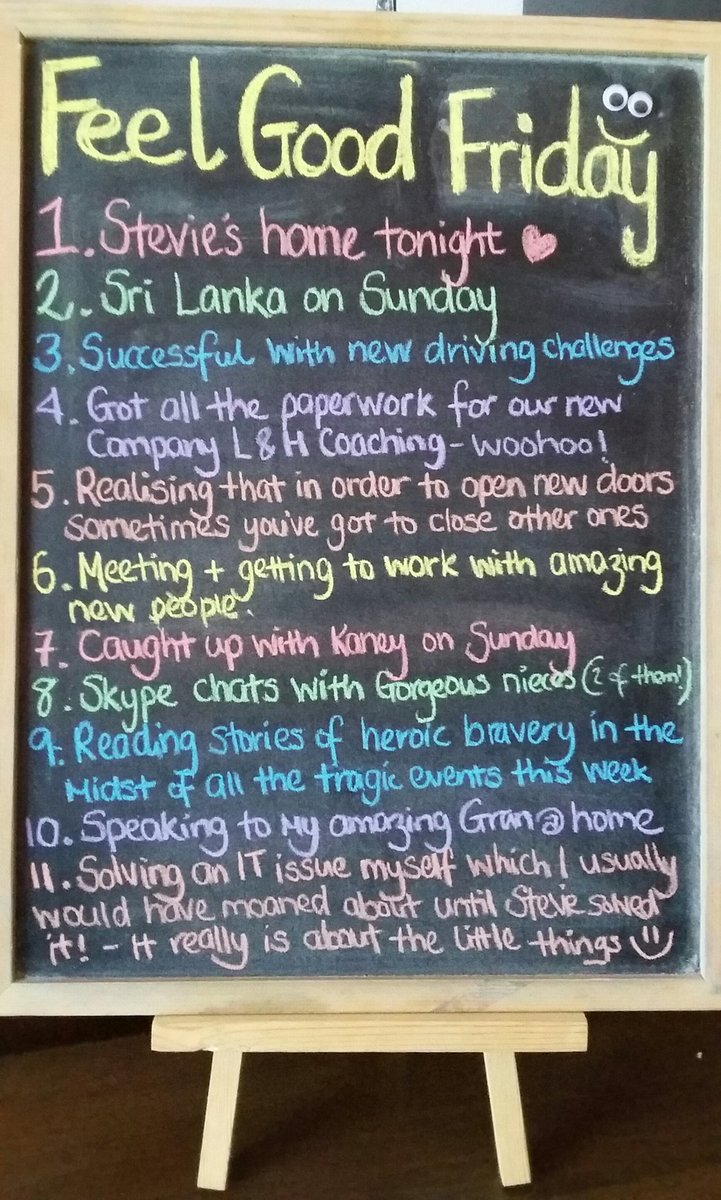 Feel Good Friday
1. Stevie's home tonight
2. Sri Lanka on Sunday
3. Successful with new driving challenges
4. Got all the paperwork for our new
Company L & H Coaching - woohoo!
5. Realising that in order to open new doors
sometimes you've got to close other ones
6. Meeting + getting to work with amazing
new people.
7. Caught up with Kaney on Sunday
8. Skype chats with Gorgeous nieces (2 of them!)
9. Reading stories of heroic bravery in the
Midst of all the tragic events this week
10. Speaking to My amazing Gran @ home
11. Solving an IT issue myself which I usually
would have moaned about until Stevie solved
it! - It really is about the little things